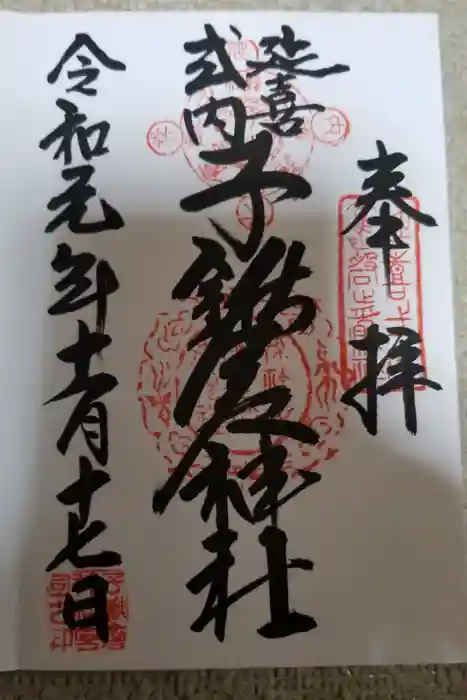 奉拝
延喜
式内
子鍬倉神社
令和元年十一月十七日